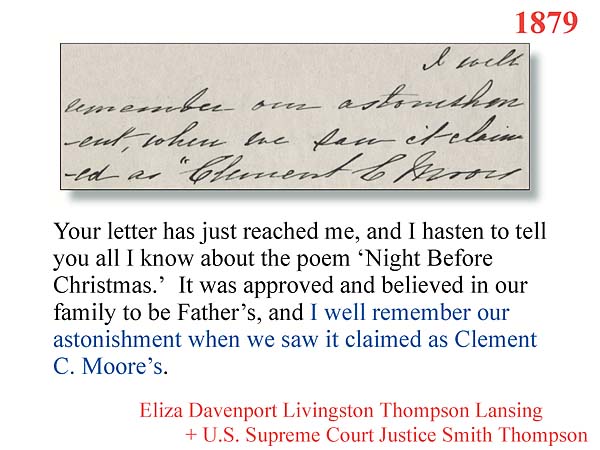 1879
I well
remember our astonishm
ent, when we saw it claim
-ed as "Clement C Moors
Your letter has just reached me, and I hasten to tell
you all I know about the poem ‘Night Before
Christmas.’  It was approved and believed in our
family to be Father’s, and I well remember our
astonishment when we saw it claimed as Clement
C. Moore’s.
Eliza Davenport Livingston Thompson Lansing
+ U.S. Supreme Court Justice Smith Thompson